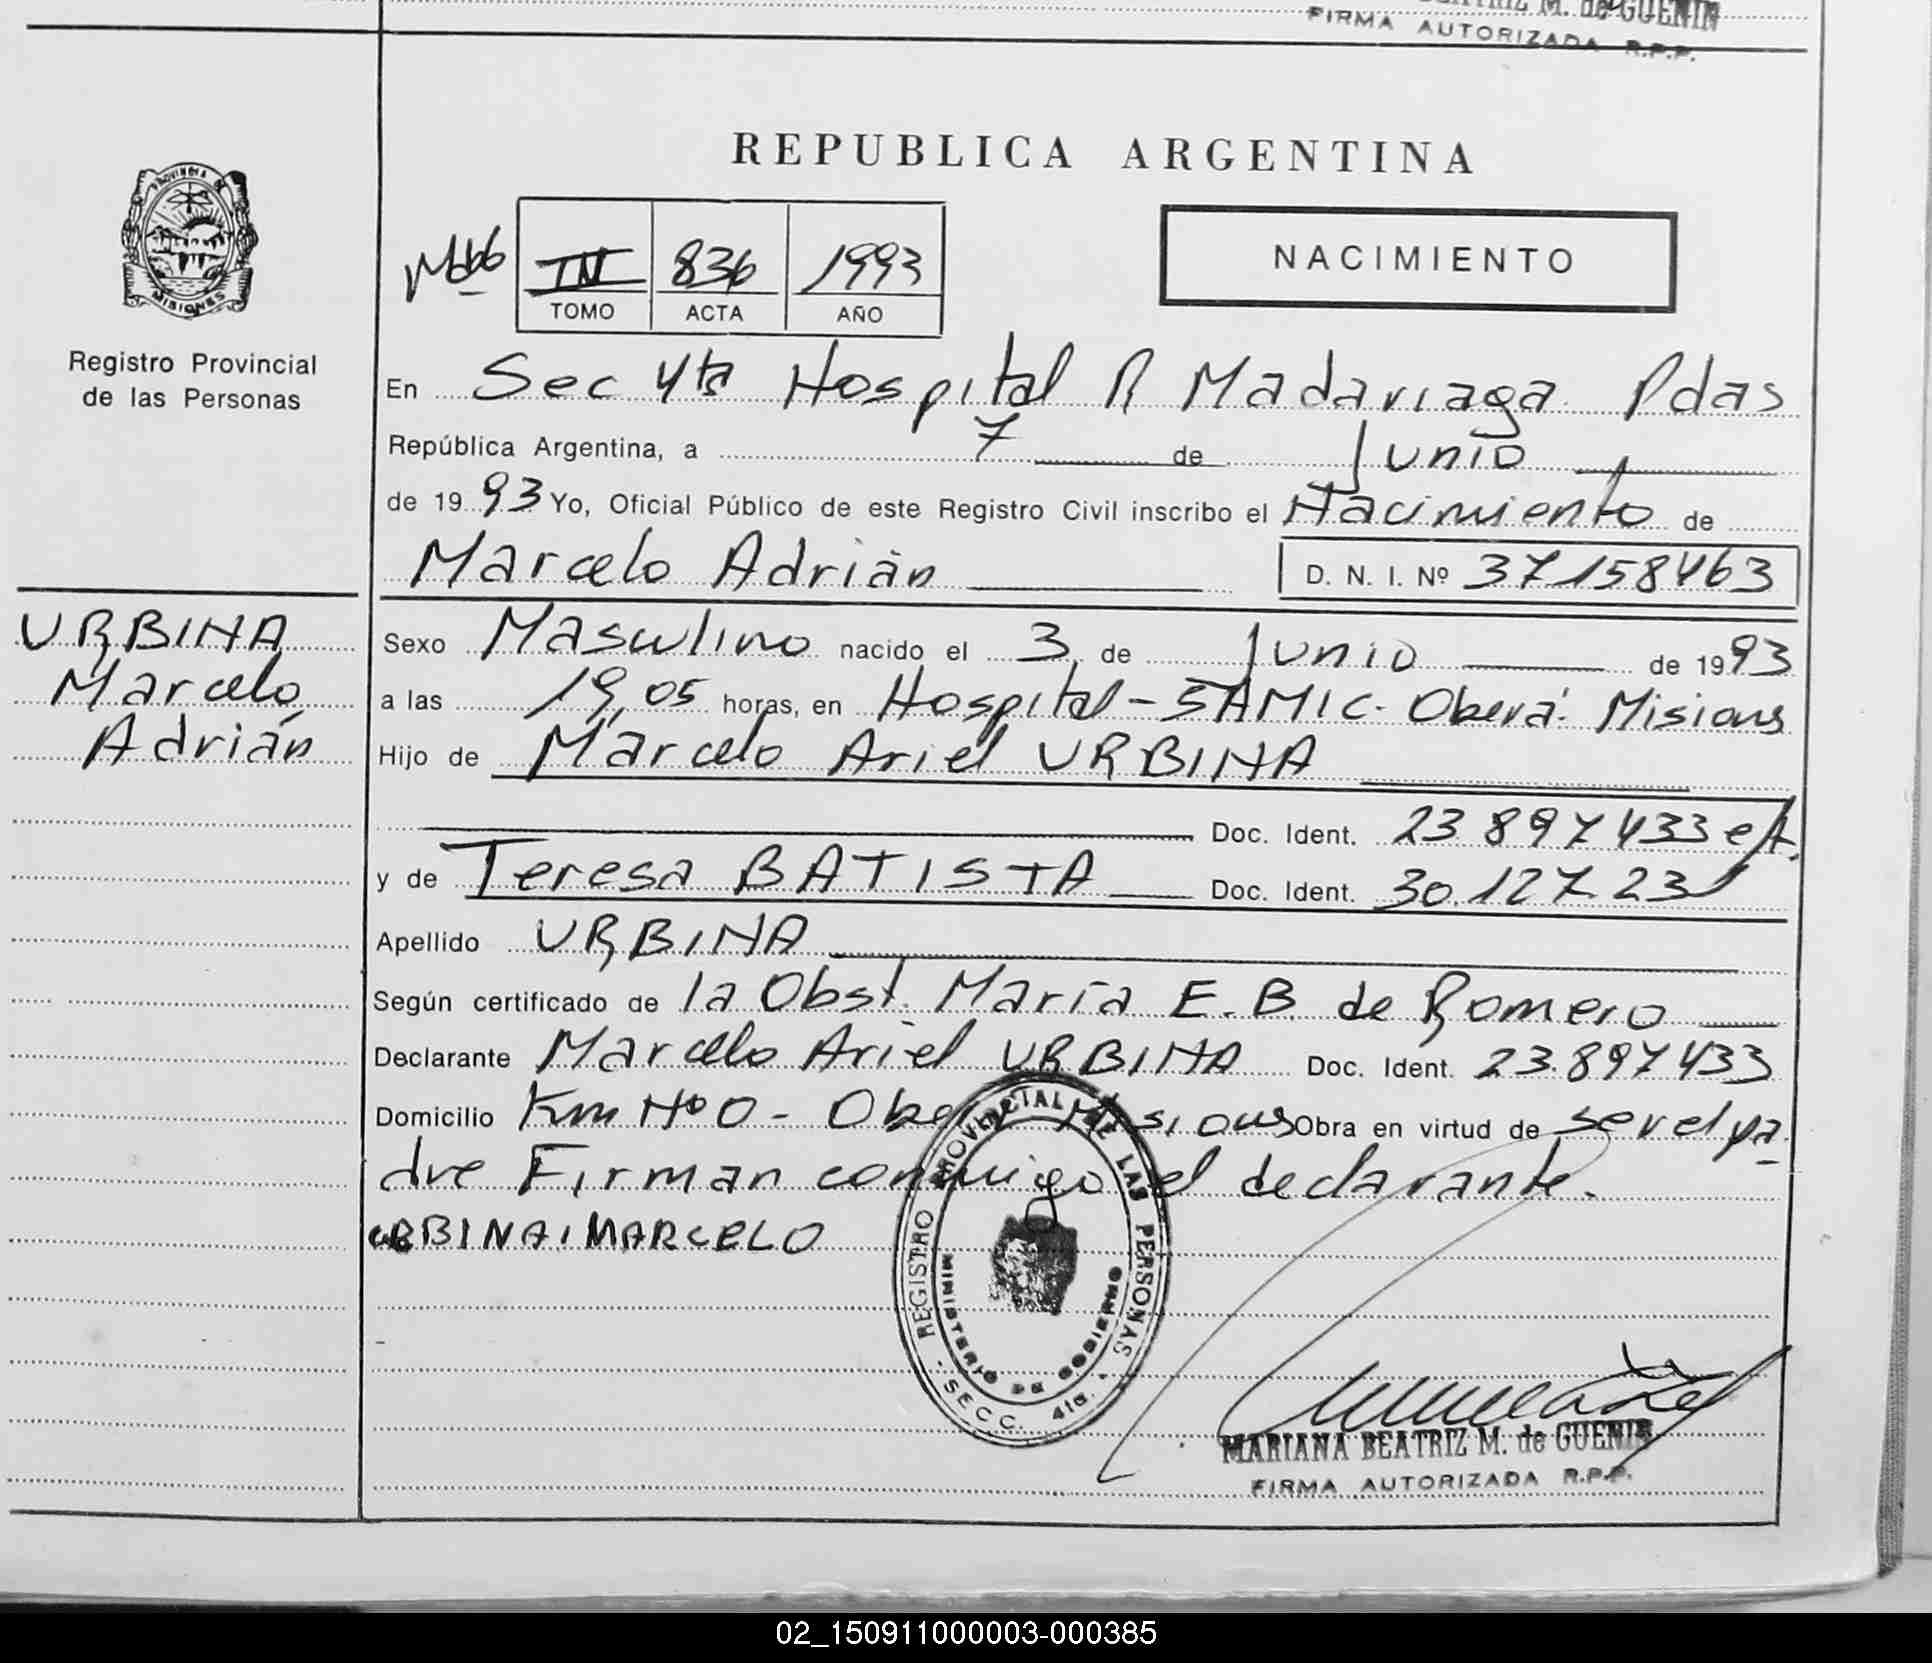 M. de GUENIN
FIRMA AUTORIZADA R.P.P.
REPUBLICA ARGENTINA
PROVINCIA DE
MISIONES
Registro Provincial
de las Personas
836 1993
TOMO ACTA AÑO
NACIMIENTO
En Sec 4ta Hospital R Madariaga Pdas
República Argentina, a 7 de Junio
de 1993 Yo, Oficial Público de este Registro Civil inscribo el Nacimiento de
Marcelo Adrián D. N. I. Nº 37158463
URBINA
Marcelo
Adrián
Sexo Masculino nacido el 3 de Junio de 1993
a las 19,05 horas, en Hospital - SAMIC. Oberá. Misiones
Hijo de Marcelo Ariel URBINA
Doc. Ident. 23.897433
y de Teresa BATISTA Doc. Ident. 30.127.23
Apellido URBINA
Según certificado de la Obst. María E. B. de Romero
Declarante Marcelo Ariel URBINA Doc. Ident. 23.897433
Domicilio Km Nº 0 - Oberá Misiones Obra en virtud de ser el pa
dre Firman conmigo el declarante.
URBINA, MARCELO
REGISTRO PROVINCIAL DE LAS PERSONAS
MINISTERIO DE GOBIERNO
SECC. 4ta.
MARIANA BEATRIZ M. de GUENIN
FIRMA AUTORIZADA R.P.P.
02_150911000003-000385